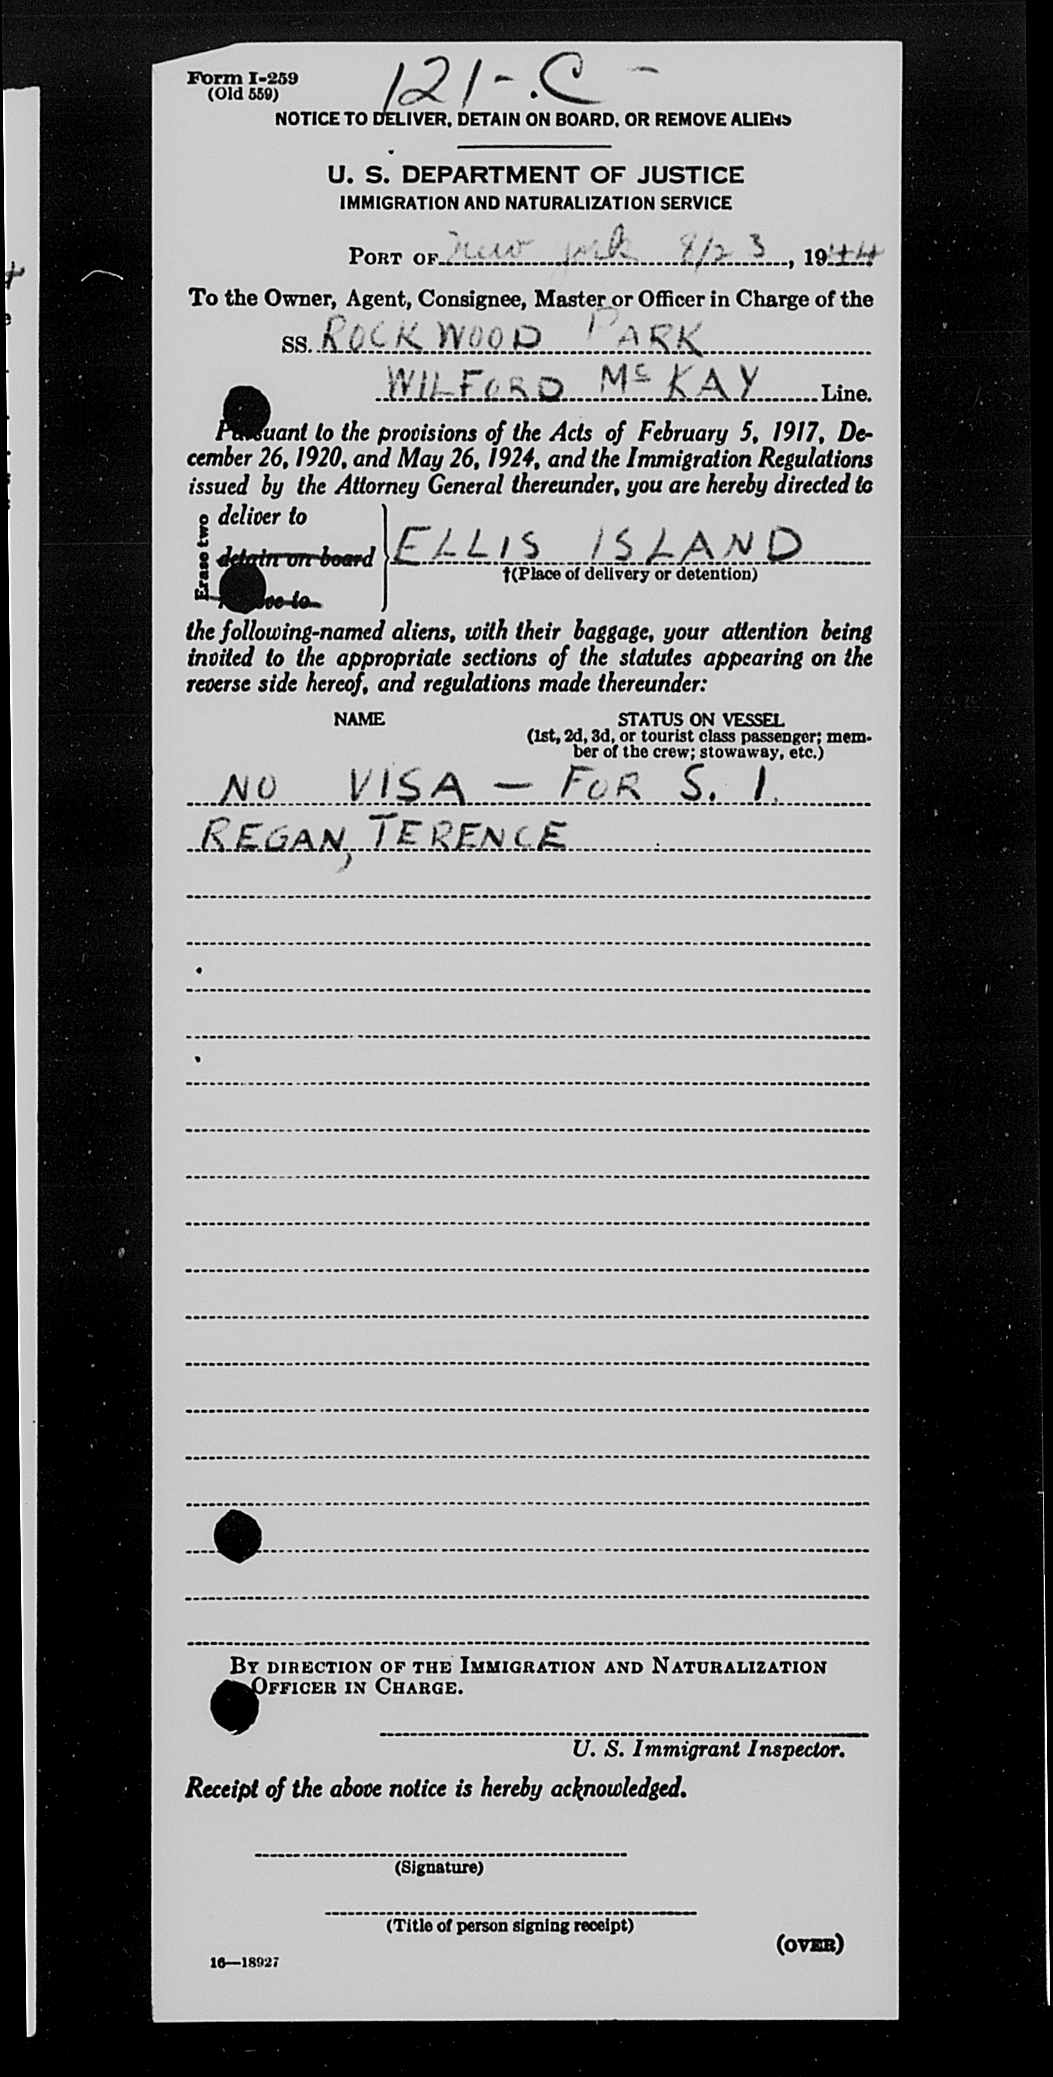 121-C-
Form I-259
(Old 559)
NOTICE TO DELIVER, DETAIN ON BOARD, OR REMOVE ALIENS
U. S. DEPARTMENT OF JUSTICE
IMMIGRATION AND NATURALIZATION SERVICE
PORT OF New York 8/23, 1944
To the Owner, Agent, Consignee, Master or Officer in Charge of the
SS. ROCKWOOD PARK
WILFORD McKAY Line.
Pursuant to the provisions of the Acts of February 5, 1917, De-
cember 26, 1920, and May 26, 1924, and the Immigration Regulations
issued by the Attorney General thereunder, you are hereby directed to
Erase two
deliver to
detain on board ELLIS ISLAND
†(Place of delivery or detention)
to
the following-named aliens, with their baggage, your attention being
invited to the appropriate sections of the statutes appearing on the
reverse side hereof, and regulations made thereunder:
NAME STATUS ON VESSEL
(1st, 2d, 3d, or tourist class passenger; mem-
ber of the crew; stowaway, etc.)
NO VISA - FOR S. I.
REGAN, TERENCE
BY DIRECTION OF THE IMMIGRATION AND NATURALIZATION
OFFICER IN CHARGE.
U. S. Immigrant Inspector.
Receipt of the above notice is hereby acknowledged.
(Signature)
(Title of person signing receipt)
(OVER)
16—18927